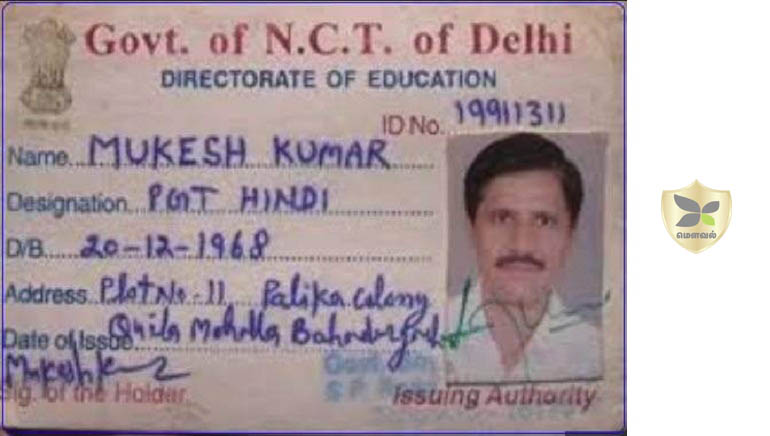 Govt. of N.C.T. of Delhi
DIRECTORATE OF EDUCATION
ID No. 19911311
Name...MUKESH KUMAR
Designation...PGT HINDI
D/B......20-12-1968
Address...Plot No-11 Palika Colony
Date of Issue Quila Mohalla Bahadurgarh
Mukesh
Sig. of the Holder
Issuing Authority
மௌவல்